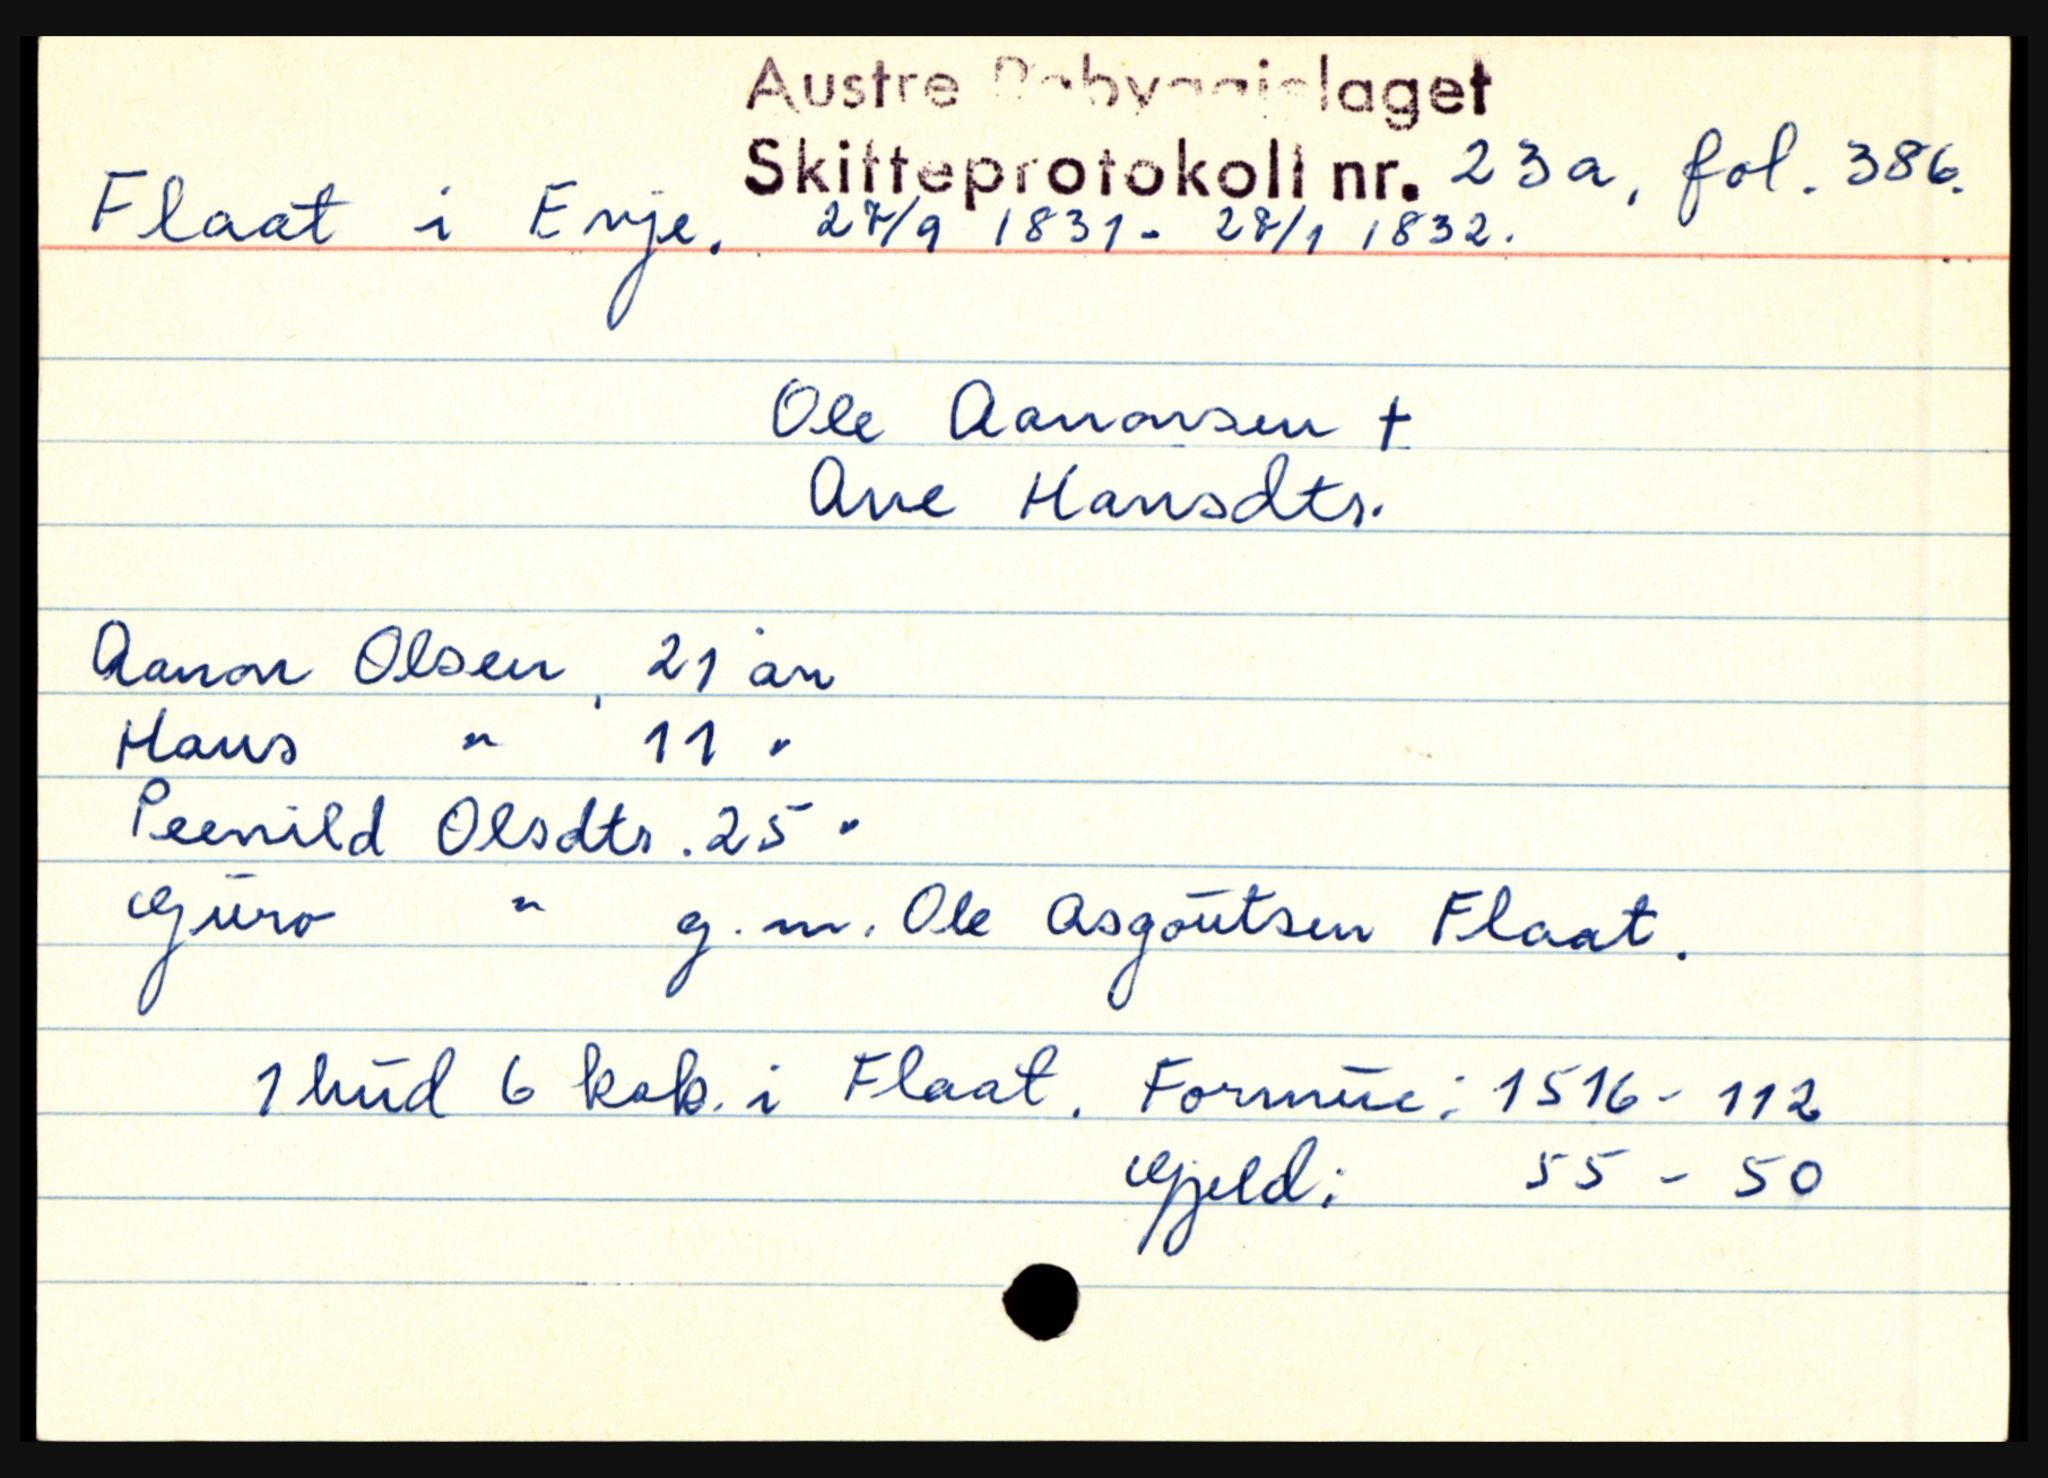 Austre Råbyggjelaget
Skifteprotokoll nr. 23a, fol. 386.
Flaat i Evje. 27/9 1831 - 28/1 1832.
Ole Aanonsen †
Ane Hansdtr.
Aanon Olsen, 21 år
Hans " 11 "
Peenild Olsdtr. 25 "
Gŭro " g.m. Ole Asgoŭtsen Flaat.
1 hŭd 6 ksk. i Flaat. Formŭe: 1516 - 112
Gjeld: 55 - 50